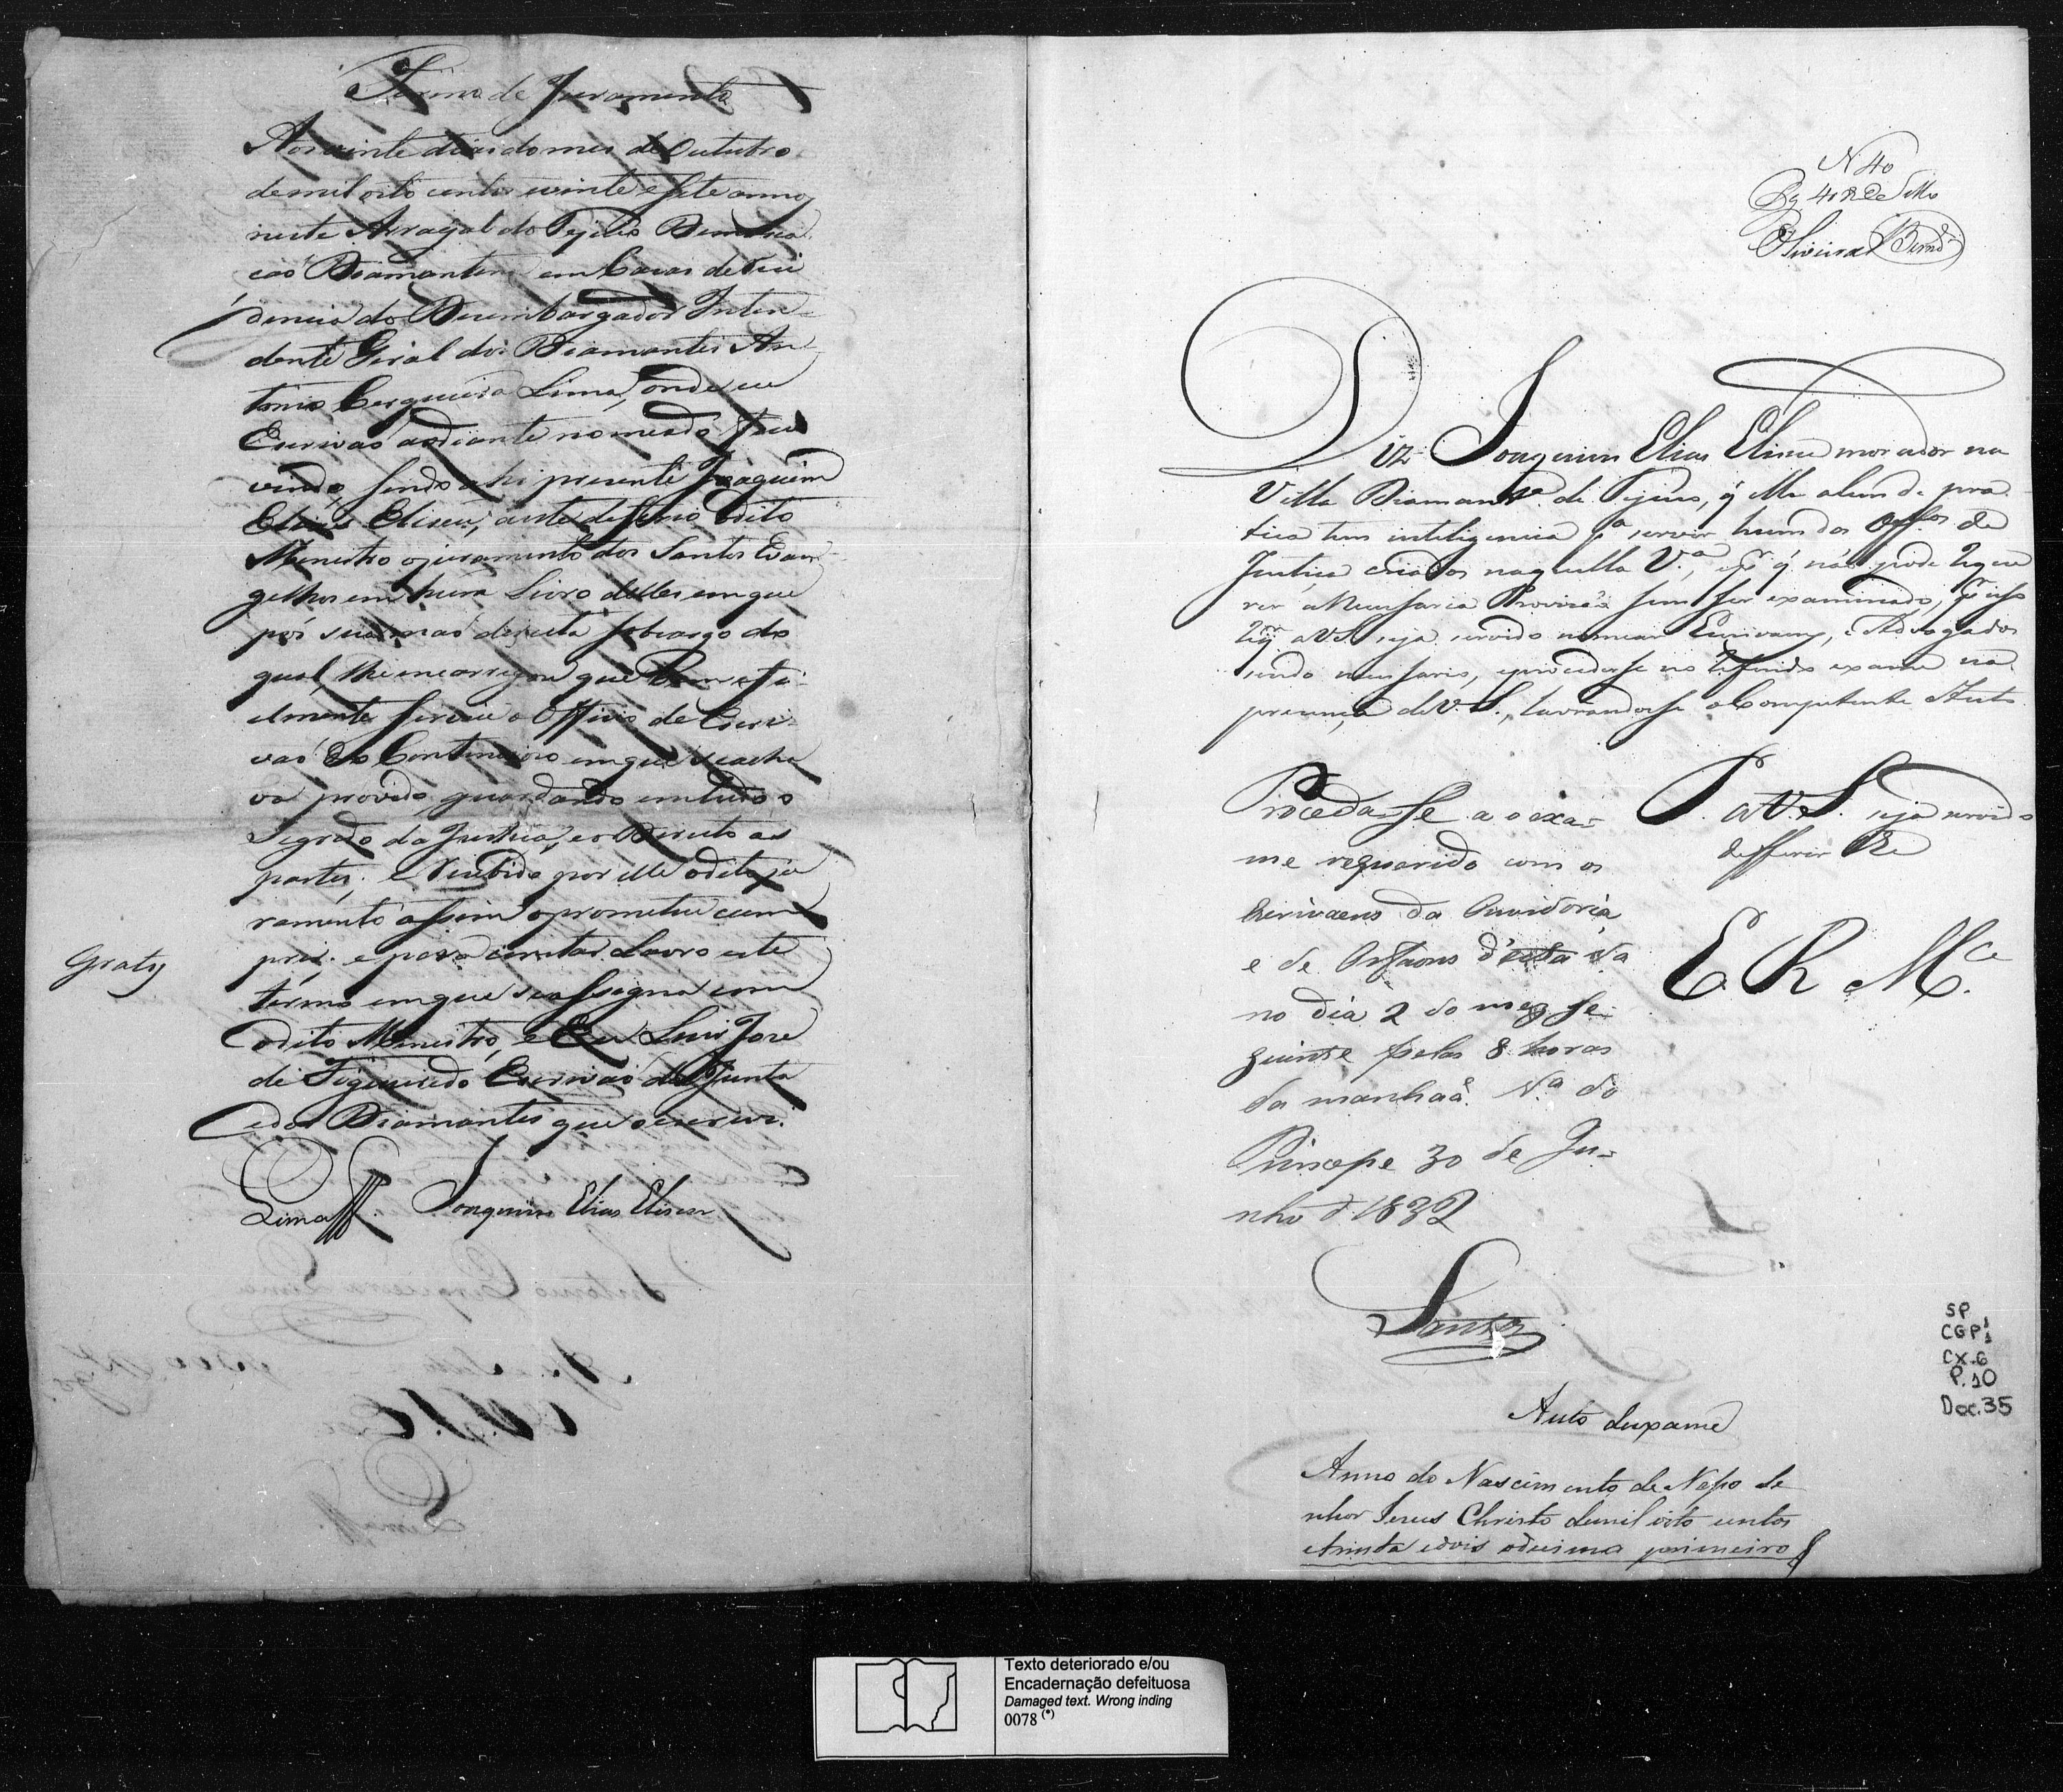 Termo de Juramento
Aos vinte dias do mes de Outubro
de mil oito centos e vinte e sete annos
neste Arrayal do Tejuco Demarca-
cao Diamantina em Cazas de Rezi
dencia do Dezembargador Inten-
dente Geral dos Diamantes An-
tonio Cerqueira Lima, onde eu
Escrivaõ aodiante nomeado fui
vindo, sendo ahi presente Joaquim
Elias Eliseu, aeste deferio odito
Menistro ojuramento dos Santos Evan-
gelhos em hum Livro delles em que
pôs sua maõ direita sobcargo do
qual lhe encarregou que bem e fi-
elmente service o Officio de Escri-
vaõ do Contencioso em que se acha
va provido guardando em tudo o
Segredo da Justiça, e o Direito as
partes; e recebido por elle odito ju
ramento assim oprometeu cum
prir. e para constar Lavro este
termo em que se assigna com
odito Menistro, e Eu Luis Jose
de Figueiredo Escrivaõ da Junta
dos Diamantes que o escrevi.
Gratis
Lima Joaquim Elias Eliseu
N 40
Pg 40 R de Sello
Oliveira
Diz Joaquim Elias Eliseu morador na
Villa Diamant.ª de Tejuco, q̃ Elle alem de pra-
tica tem inteligencia p.ª servir hum dos Off.os de
Justiça criados naquella V.ª, e p.r q̃ naõ pode reque
rer a Nessaria Provizaõ sem ser examinado, p.r isso
seja servido nomear Escrivaens, e Advogados
sendo nessario, e proceder-se no referido exame na
prezença de V. S., lavrandosse o Competente Auto.
P. a V. S. seja servido
defferir
E. R. M.ce
Proceda-se a o exa-
me requerido com os
Escrivaens da Ouvidoria
e de Orfaons d'esta V.ª
no dia 2 do mez se-
guinte pelas 8 horas
da manhaã. V.ª do
Principe 30 de Ju-
nho d. 1832
Santos
Auto de exame
Anno do Nascimento de Nosso Se
nhor Jesus Christo de mil oito centos
e trinta e dois odecima primeiro
SP
CGP1
CX.6
P.10
Doc.35
Texto deteriorado e/ou
Encadernação defeituosa
Damaged text. Wrong inding
0078 (*)